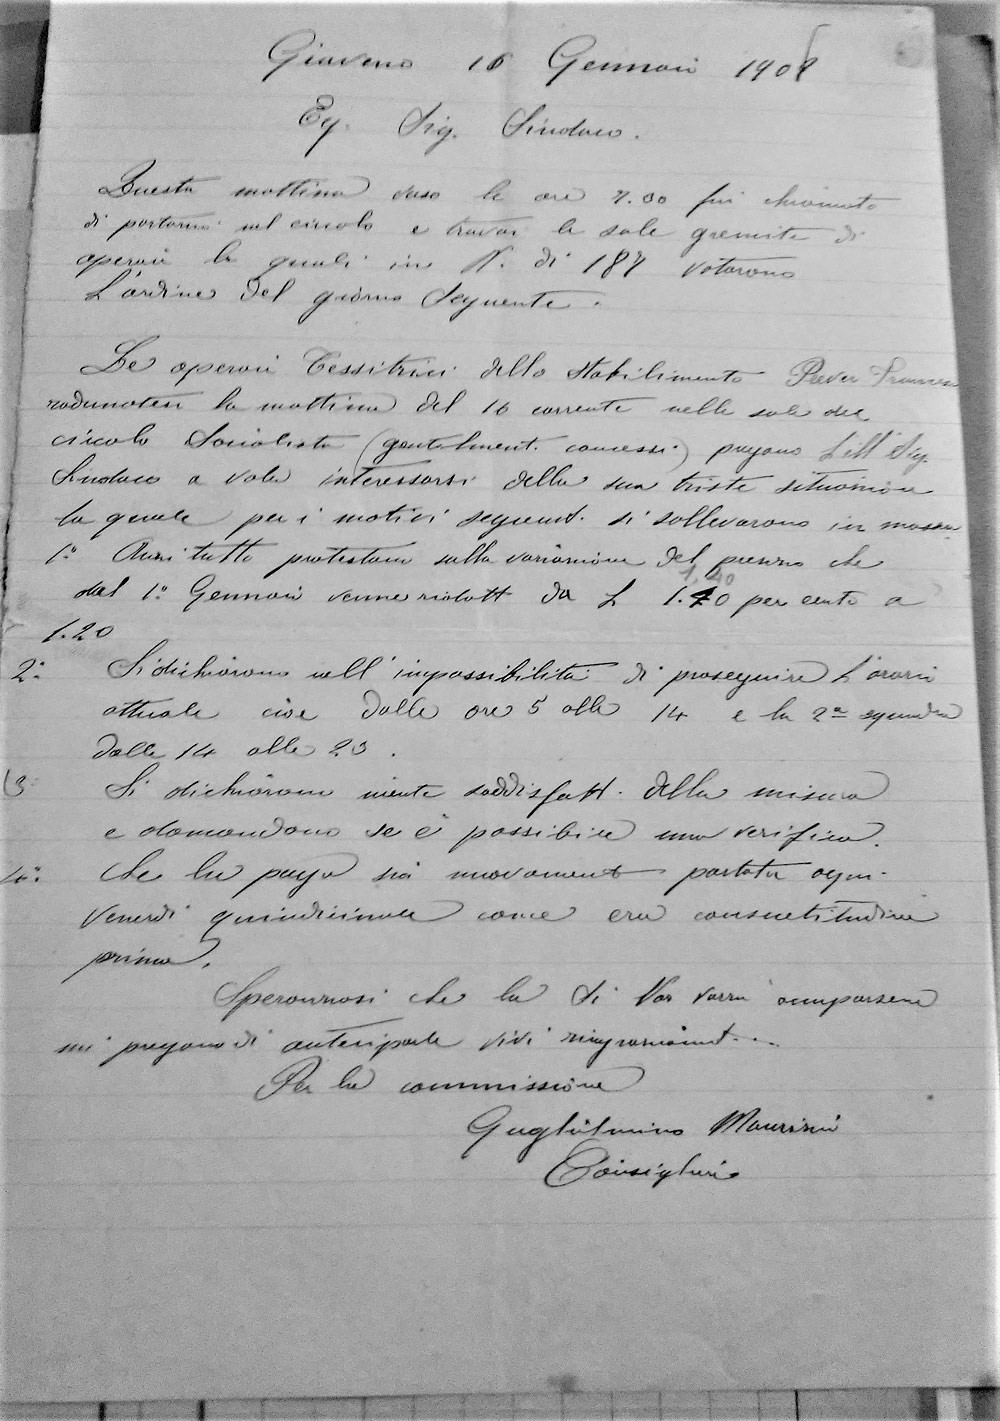 Giaveno 16 Gennaio 1908
Eg. Sig. Sindaco.
Questa mattina verso le ore 7.00 fui chiamato
di portarmi nel circolo e trovai le sale gremite di
operaie le quali in N. di 187 votarono
L'ordine del giorno seguente.
Le operaie Tessitrici dello stabilimento Prever
radunatesi la mattina del 16 corrente nelle sale del
circolo Socialista (gentilment. concessi) pregano L'Ill. Sig.
Sindaco a voler interessarsi della sua triste situazione
la quale per i motivi seguent. si sollevarono in massa
1.° Anzi tutto protestano sulla variazione del prezzo che
1,40
dal 1.° Gennaio venne ridott da L 1.40 per cento a
1.20
2.° Si dichiarono nell'impossibilità di proseguire L'orario
attuale cioe dalle ore 5 alle 14 e la 2ª squadra
dalle 14 alle 23.
3° Si dichiarano niente soddisfatt. della misura
e domandono se è possibile una verifica.
4.° Che la paga sia nuovament portata ogni
Venerdi quindicinale come era consuetitudine
prima.
Speranzosi che la Si Vos vorrà
mi pregano di anteciparle vivi ringraziament...
Per la commissione
Guglielmino Maurizio
Consigliere